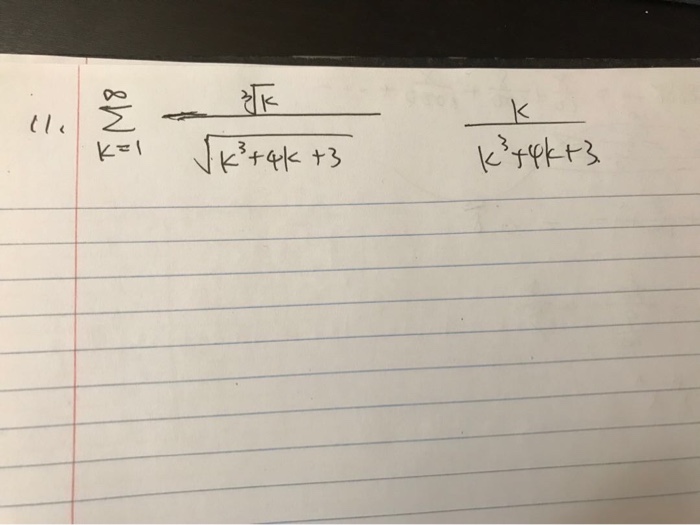 11. ∞ ∑ k=1 ∛k / √(k³+4k+3)    k / k³+4k+3.